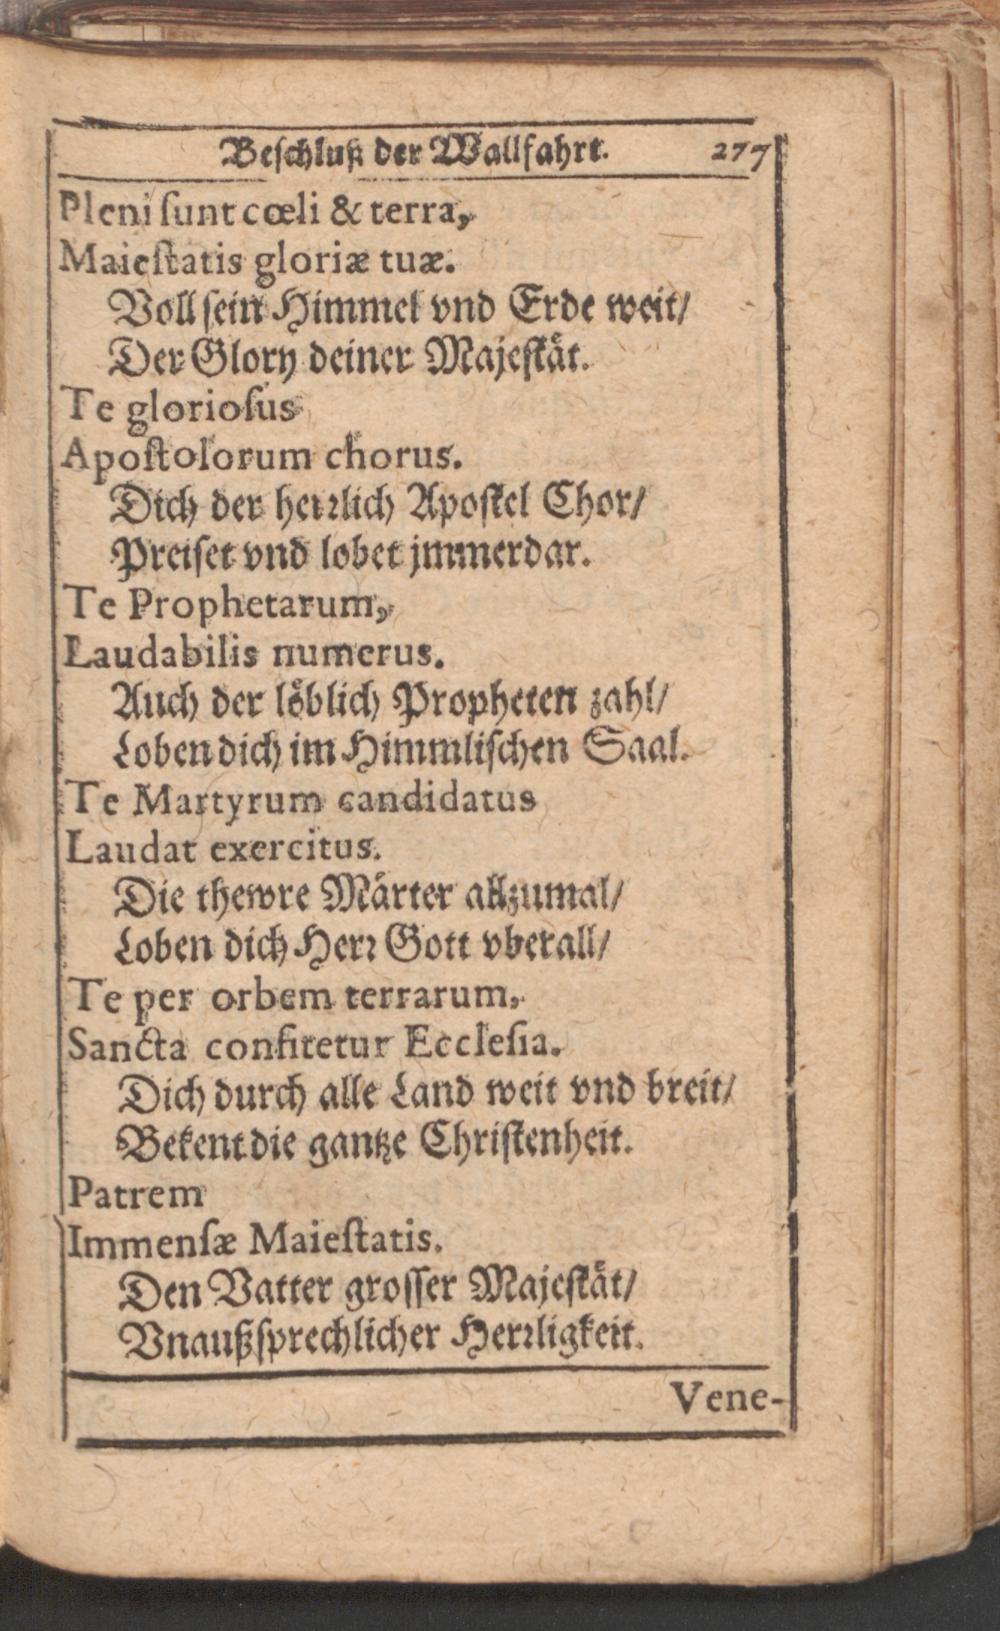 Beschluß der Wallfahrt. 277
Pleni ſunt cœli & terra,
Maieſtatis gloriæ tuæ.
Voll ſein Himmel vnd Erde weit/
Der Glory deiner Majeſtåt.
Te glorioſus
Apoſtolorum chorus.
Dich der herꝛlich Apoſtel Chor/
Preiſet vnd lobet jmmerdar.
Te Prophetarum,
Laudabilis numerus.
Auch der lỏblich Propheten zahl/
Loben dich im Himmliſchen Saal.
Te Martyrum candidatus
Laudat exercitus.
Die thewre Mårter allzumal/
Loben dich Herꝛ Gott vberall/
Te per orbem terrarum,
Sancta confitetur Eccleſia.
Dich durch alle Land weit vnd breit/
Bekent die gantze Chriſtenheit.
Patrem
Immenſæ Maieſtatis.
Den Vatter groſſer Majeſtåt/
Vnaußſprechlicher Herꝛligkeit.
Vene-